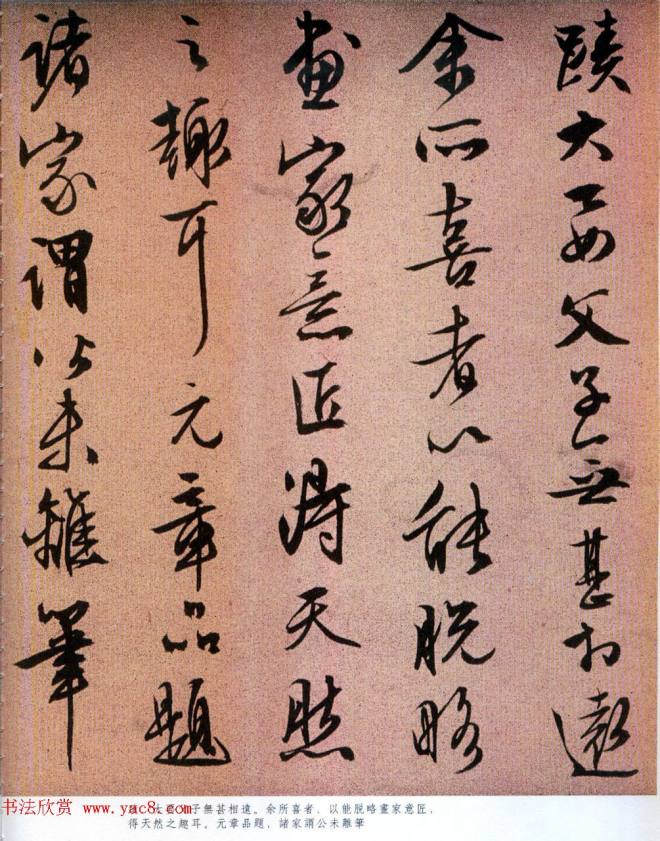 蹟大要父子無甚相遠
余所喜者以能脱略
畫家意匠得天然
之趣耳元章品題
諸家謂公未離筆
大 子無甚相遠。余所喜者,以能脱略畫家意匠,
得天然之趣耳。元章品題,諸家謂公未離筆
书法欣赏 www.yac8.com